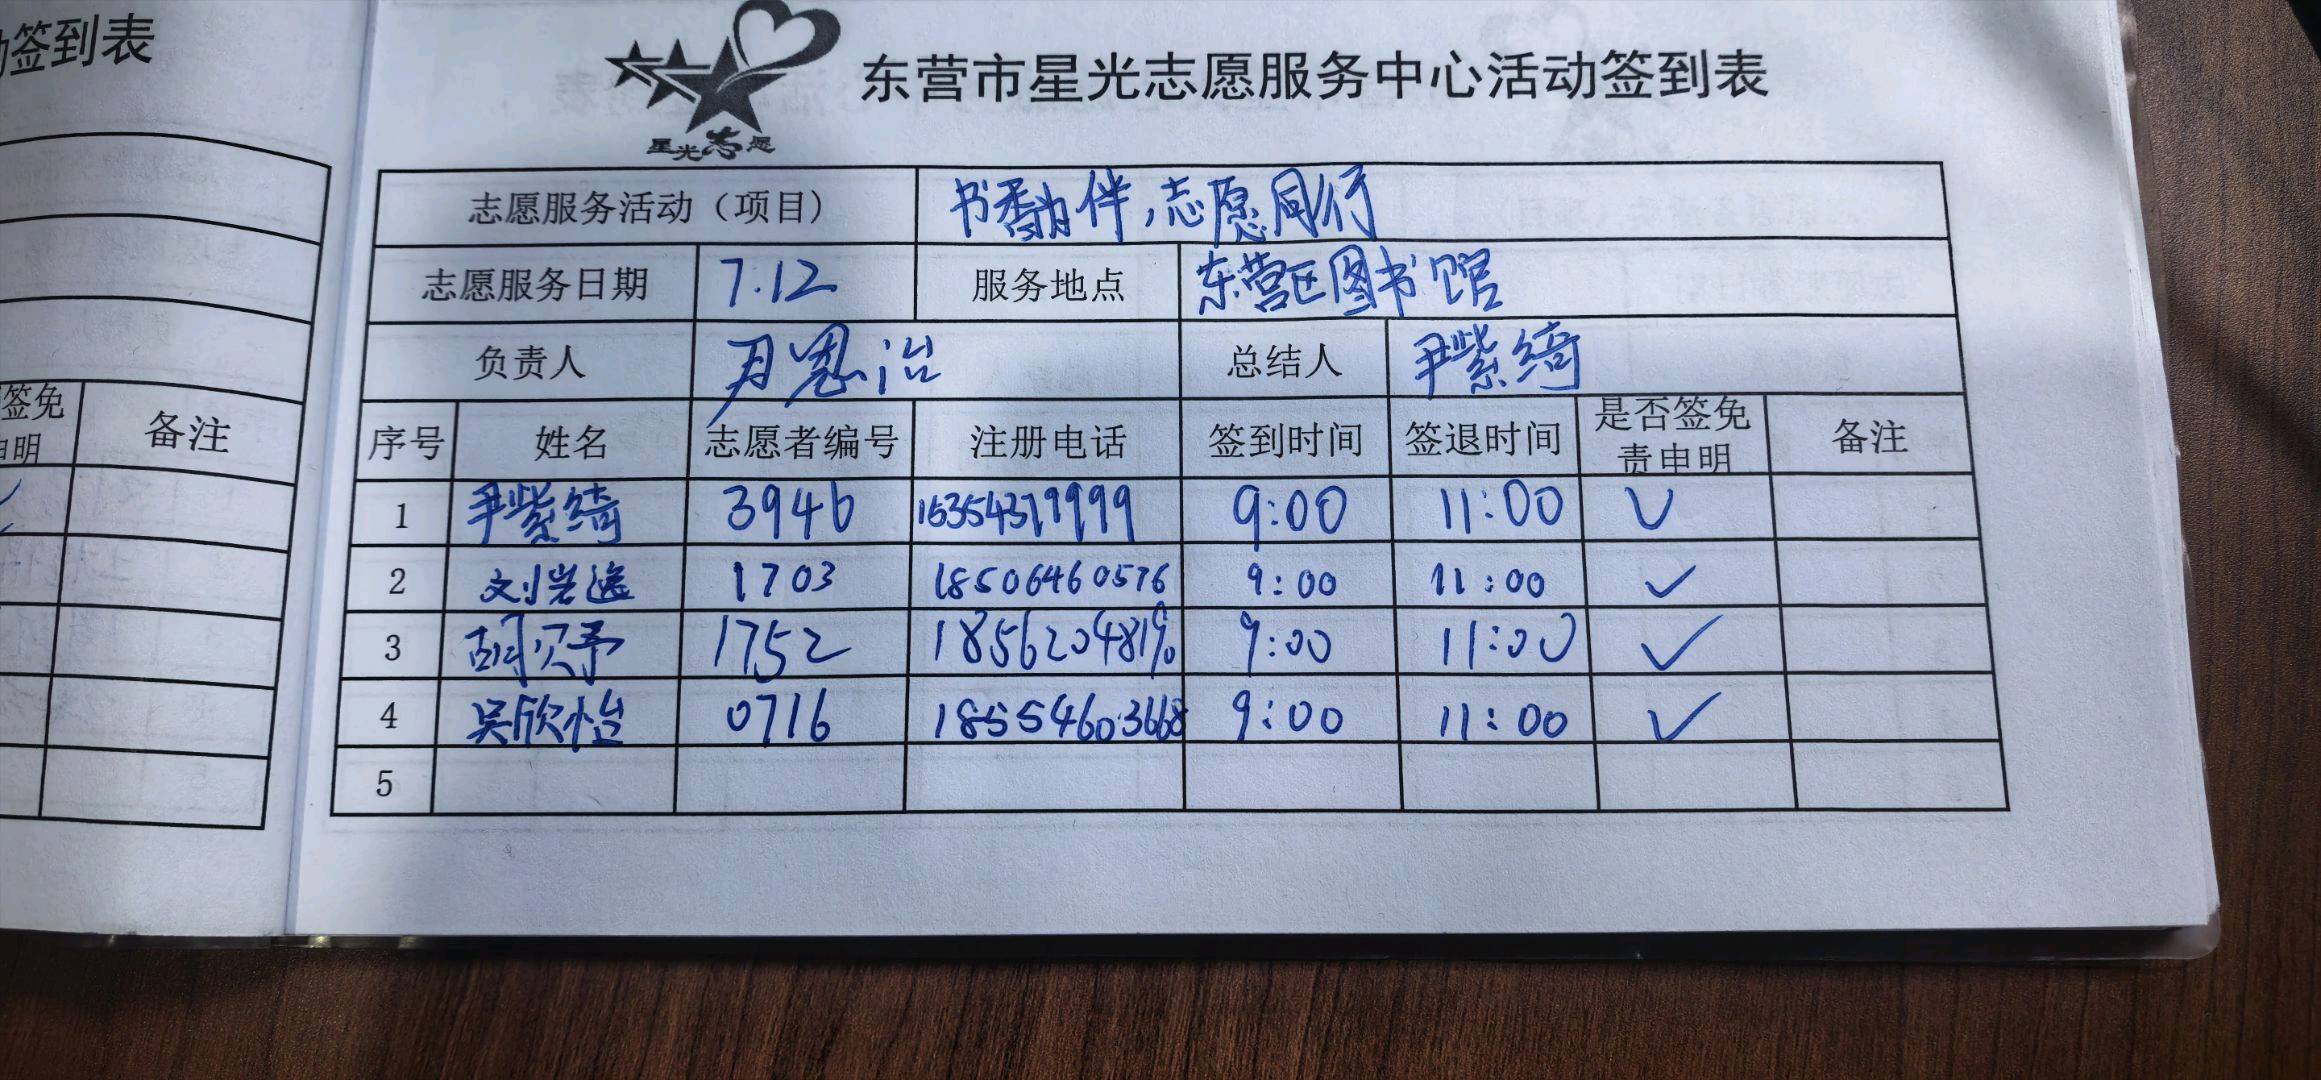 动签到表
签免
申明
备注
星光志愿
东营市星光志愿服务中心活动签到表
志愿服务活动（项目） 书香为伴，志愿同行
志愿服务日期 7.12 服务地点 东营区图书馆
负责人 总结人 尹紫绮
序号 姓名 志愿者编号 注册电话 签到时间 签退时间 是否签免责申明 备注
1 尹紫绮 3946 9:00 11:00 ✓
2 1703 18506460576 9:00 11:00 ✓
3 胡贝予 1752 9:00 11:00 ✓
4 吴欣怡 0716 18554603668 9:00 11:00 ✓
5